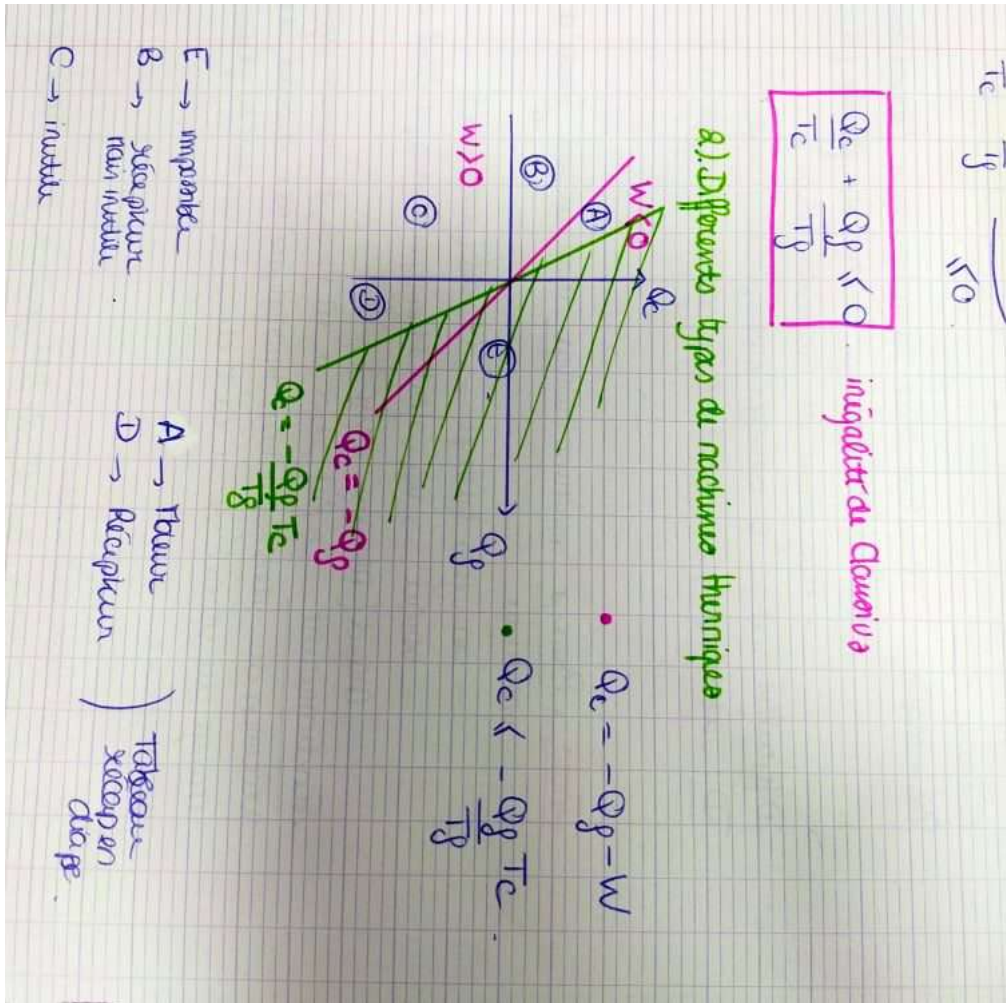 Tc Tf
≤ 0
Qc/Tc + Qf/Tf ≤ 0 inégalité de Clausius
2). Différents types de machines thermiques
Qc
W<0
A
B
W>0
C
D
E
Qf
Qc = -Qf
Qc = -Qf/Tf Tc
• Qc = -Qf - W
• Qc ≤ -Qf/Tf Tc
E → impossible
B → récepteur
mais inutile
C → inutile
A → Moteur
D → Récepteur
Tableau
récap en
diapo